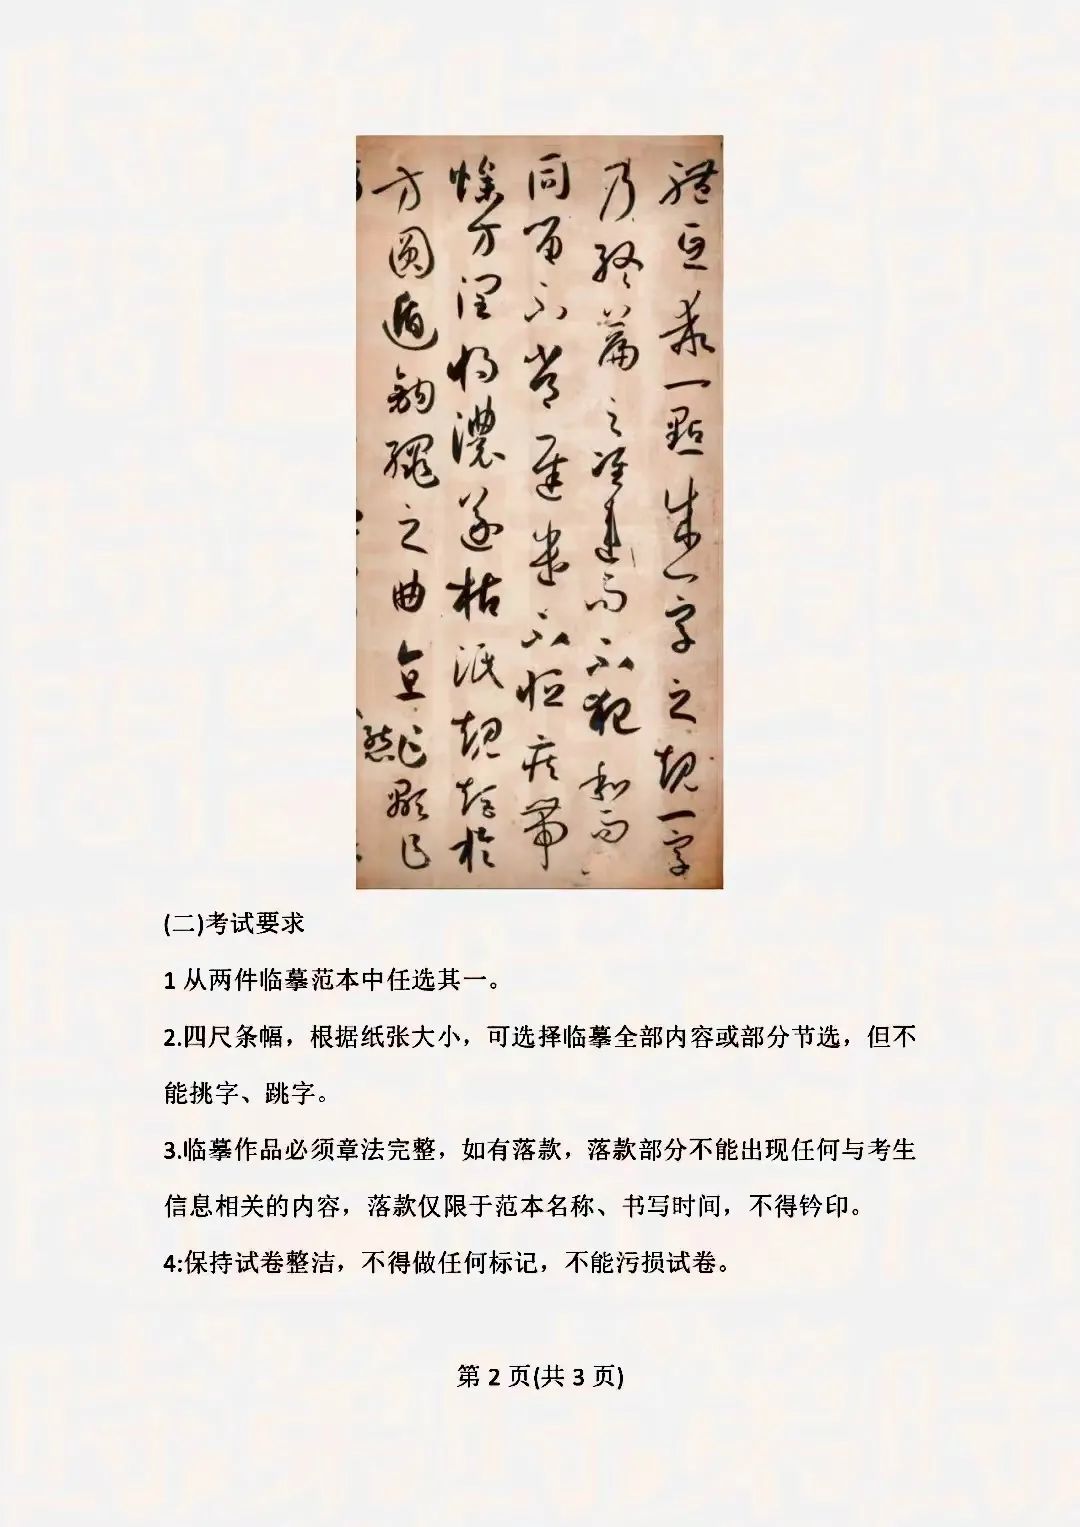 體互乖一點成一字之規一字
乃終篇之準違而不犯和而
同留不常遲遣不恒疾帶
燥方潤將濃遂枯泯規矩於
方圓遁鉤繩之曲直乍顯乍
(二)考试要求
1 从两件临摹范本中任选其一。
2.四尺条幅，根据纸张大小，可选择临摹全部内容或部分节选，但不
能挑字、跳字。
3.临摹作品必须章法完整，如有落款，落款部分不能出现任何与考生
信息相关的内容，落款仅限于范本名称、书写时间，不得钤印。
4:保持试卷整洁，不得做任何标记，不能污损试卷。
第 2 页(共 3 页)